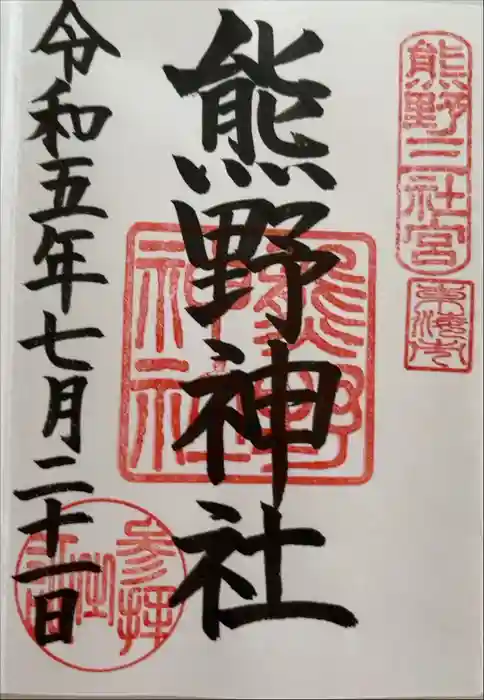 熊野三社宮
東海市
熊野神社
熊野
神社
令和五年七月二十一日
参拝